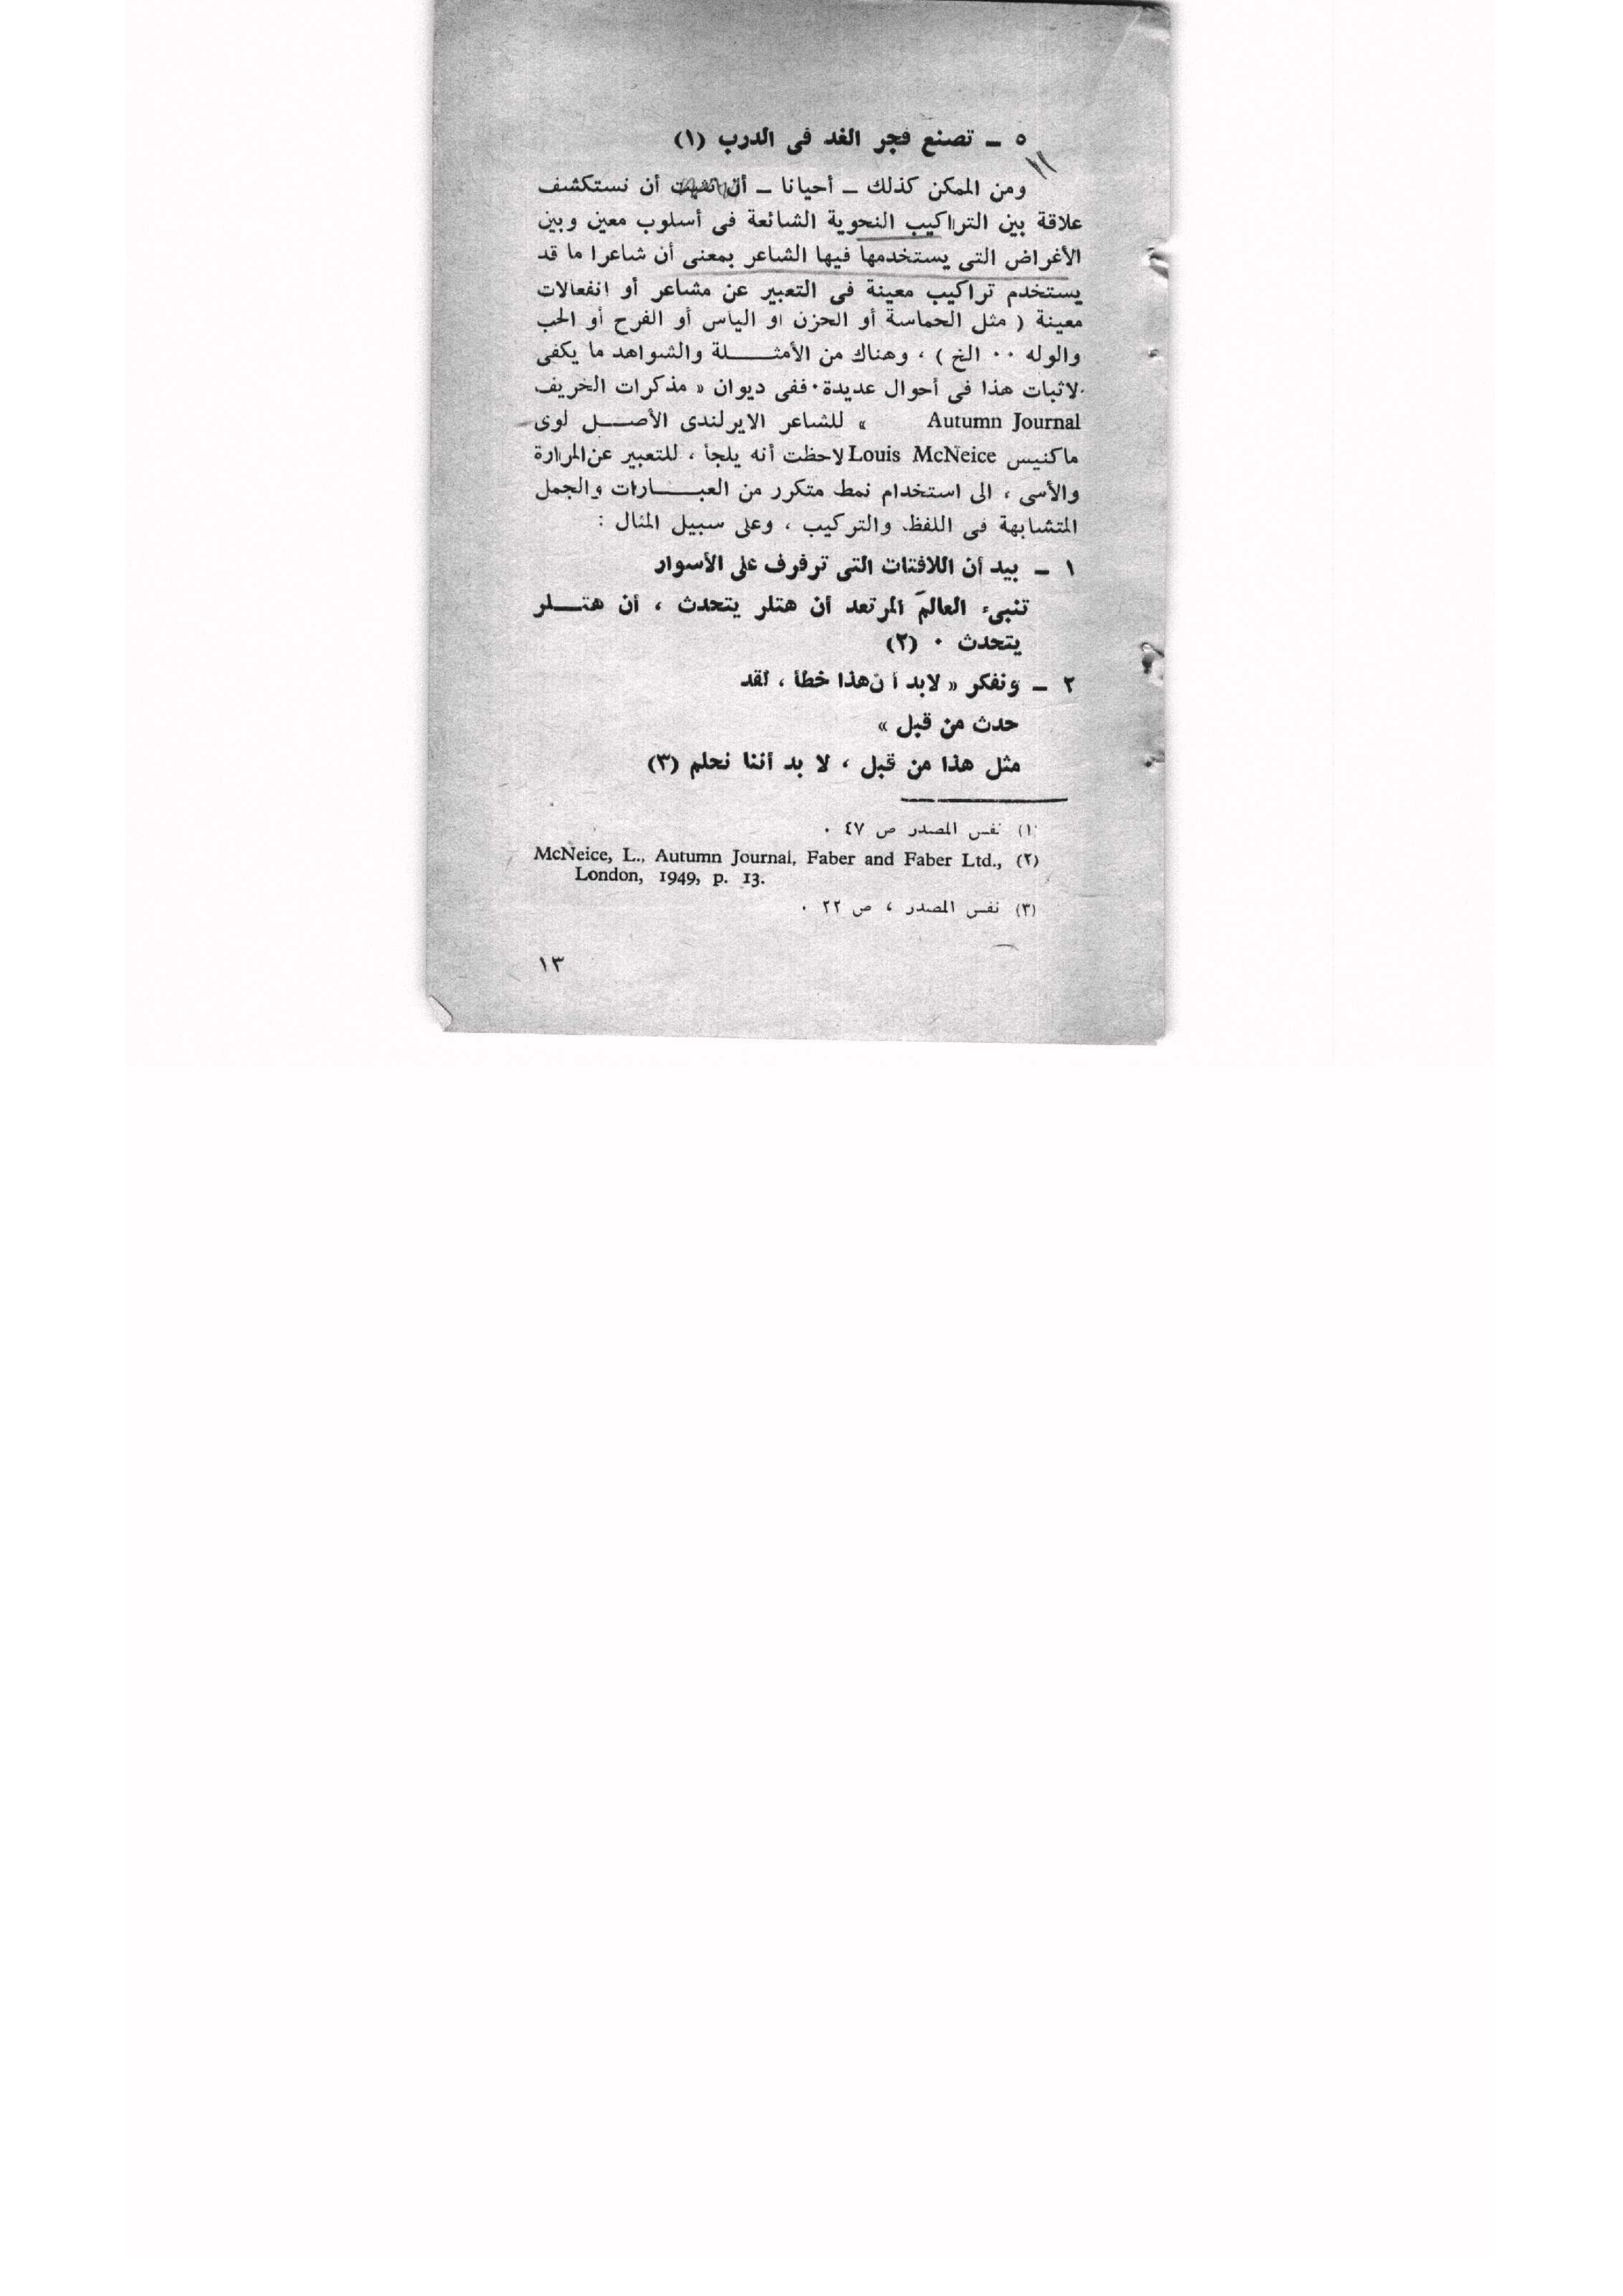 ٥ ــ تصنع فجر الغد فى الدرب (١)
ومن الممكن كذلك ــ أحيانا ــ أن نستكشف
علاقة بين التراكيب النحوية الشائعة فى أسلوب معين وبين
الأغراض التى يستخدمها فيها الشاعر بمعنى أن شاعرا ما قد
يستخدم تراكيب معينة فى التعبير عن مشاعر أو انفعالات
معينة ( مثل الحماسة أو الحزن أو اليأس أو الفرح أو الحب
والوله ٠٠ الخ ) ، وهناك من الأمثلة والشواهد ما يكفى
لاثبات هذا فى أحوال عديدة ٠ ففى ديوان « مذكرات الخريف
Autumn Journal » للشاعر الايرلندى الأصل لوى
ماكنيس Louis McNeice لاحظت أنه يلجأ ، للتعبير عن المرارة
والأسى ، الى استخدام نمط متكرر من العبارات والجمل
المتشابهة فى اللفظ والتركيب ، وعلى سبيل المثال :
١ ــ بيد أن اللافتات التى ترفرف على الأسوار
تنبىء العالمَ المرتعد أن هتلر يتحدث ، أن هتلر
يتحدث ٠ (٢)
٢ ــ ونفكر « لابد أن هذا خطأ ، لقد
حدث من قبل »
مثل هذا من قبل ، لا بد أننا نحلم (٣)
(١) نفس المصدر ص ٤٧ ٠
(٢) McNeice, L., Autumn Journal, Faber and Faber Ltd.,
London, 1949, p. 13.
(٣) نفس المصدر ، ص ٢٢ ٠
١٣